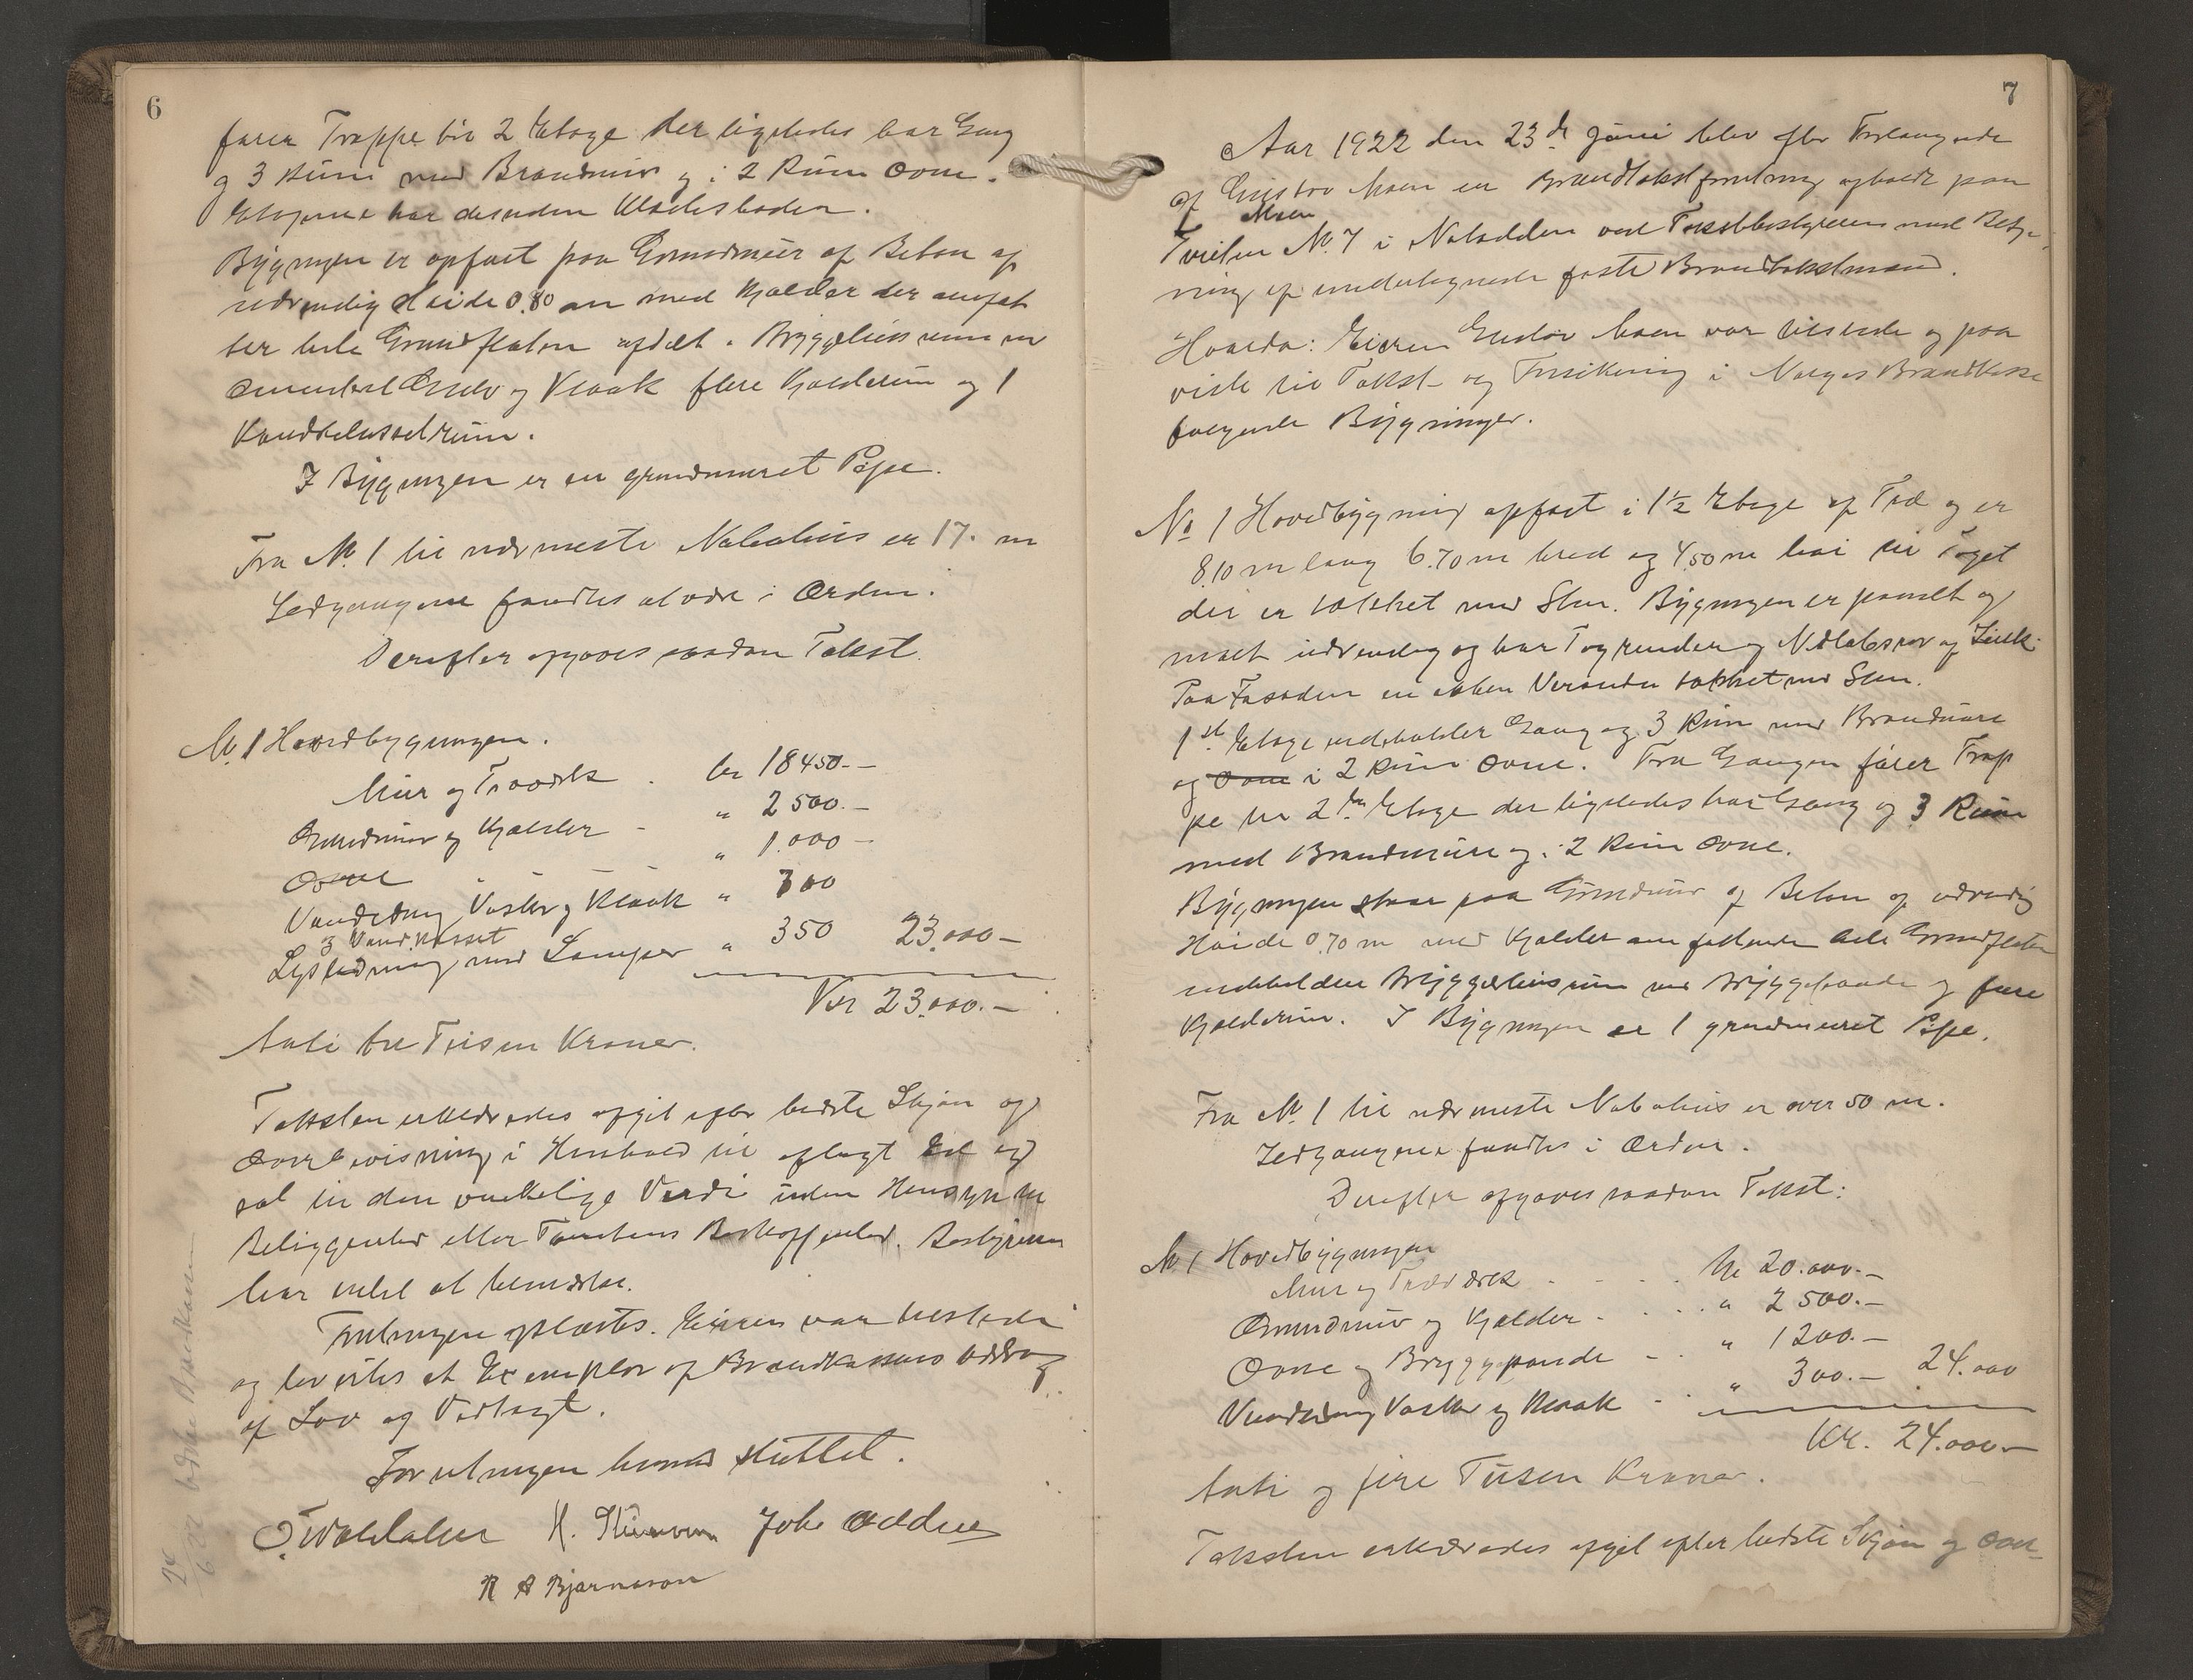 6
fører Trappe til 2 Etage der ligeledes har Gang
og 3 Rum med Brandmur og i 2 Rum Ovne.
Etagerne har desuden Klædesboder.
Bygningen er opført paa Grundmur af Beton af
udvendig Høide 0.80 m med Kjælder der omfat
ter hele Grundflaten afdelt. Bryggehus rum m
Cementert Gulv og Kloak flere Kjælderum og 1
Vandklosetrum.
I Bygningen er en grundmuret Pipe.
Fra No. 1 til nærmeste Nabohus er 17. m
Ildgangene fandtes at være i Orden.
Derefter afgaves saadan Takst.
No. 1 Hovedbygningen.
Mur og Træværk . kr 18450.-
Grundmur og Kjælder - " 2500.-
Ovne " 1.000 -
Vandledning, Vasker og Kloak " 700
3 Vand.klosset
Lysledning med Lamper " 350 23.000-
Kr 23.000.-
Tuti tre Tusen Kroner.
Taksten erklæredes afgit efter bedste Skjøn og
Overbevisning i Henhold til aflagt Ed og
sat til den virkelige Værdi uden Hensyn til
Beliggenhed eller Tomtens Beskaffenhed. Bestyreren
har intet at bemærke.
Forretningen oplæstes. Eieren var tilstede
og leveertes et Exemplar af Brandkassens Uddrag
af Lov og Vedtægt.
Forretningen hermed sluttet.
John Oddnes
R A Bjørnsson
Brandkassen
24/6 22
7
Aar 1922 den 23de Juni blev efter Forlangende
af Gustov Moen en Brandtakstforretning afholdt paa
Moen
Tveiten No. 7 i Notodden ved Takstbestyreren med Betje-
ning af undertegnede faste Brandtakstmænd.
Hvorda: Eieren Gustov Moen var tilstede og paa
viste til Takst og Forsikring i Norges Brandkasse
følgende Bygninger.
No 1 Hovedbygning opført i 1½ Etage af Træ og er
8.10 m lang 6.70 m bred og 4.50 m høi til Taget
der er tækket med Sten. Bygningen er panelt og
malt udvendig og har Tagrender og Nedløbsrør af Zink.
Paa Fasaden en aaben Veranda tækket med Sten.
1ste Etage indeholder Gang og 3 Rum med Brandmure
og Ovne i 2 Rum Ovne. Fra Gangen fører Trap
pe til 2den Etage der ligeledes har Gang og 3 Rum
med Brandmure og i 2 Rum Ovne.
Bygningen staar paa Grundmur af Beton af udvendig
Høide 0.70 m med Kjælder omfattende hele Grundflaten
indeholder Bryggerhusrum med Bryggepande og flere
Kjælderum. I Bygningen er 1 grundmuret Pipe.
Fra No. 1 til nærmeste Nabohus er over 50 m.
Ildgangene fandtes i Orden.
Derefter afgaves saadan Takst:
No 1 Hovedbygningen
Mur og Træværk - - . kr 20.000.-
Grundmur og Kjælder - . . . " 2500.-
Ovne og Bryggepande - . " 1200.-
Vandledning Vasker og Kloak - . " 300.- 24.000
Kr. 24.000.-
Tuti og fire Tusen Kroner.
Taksten erklæredes afgit efter bedste Skjøn og Over-